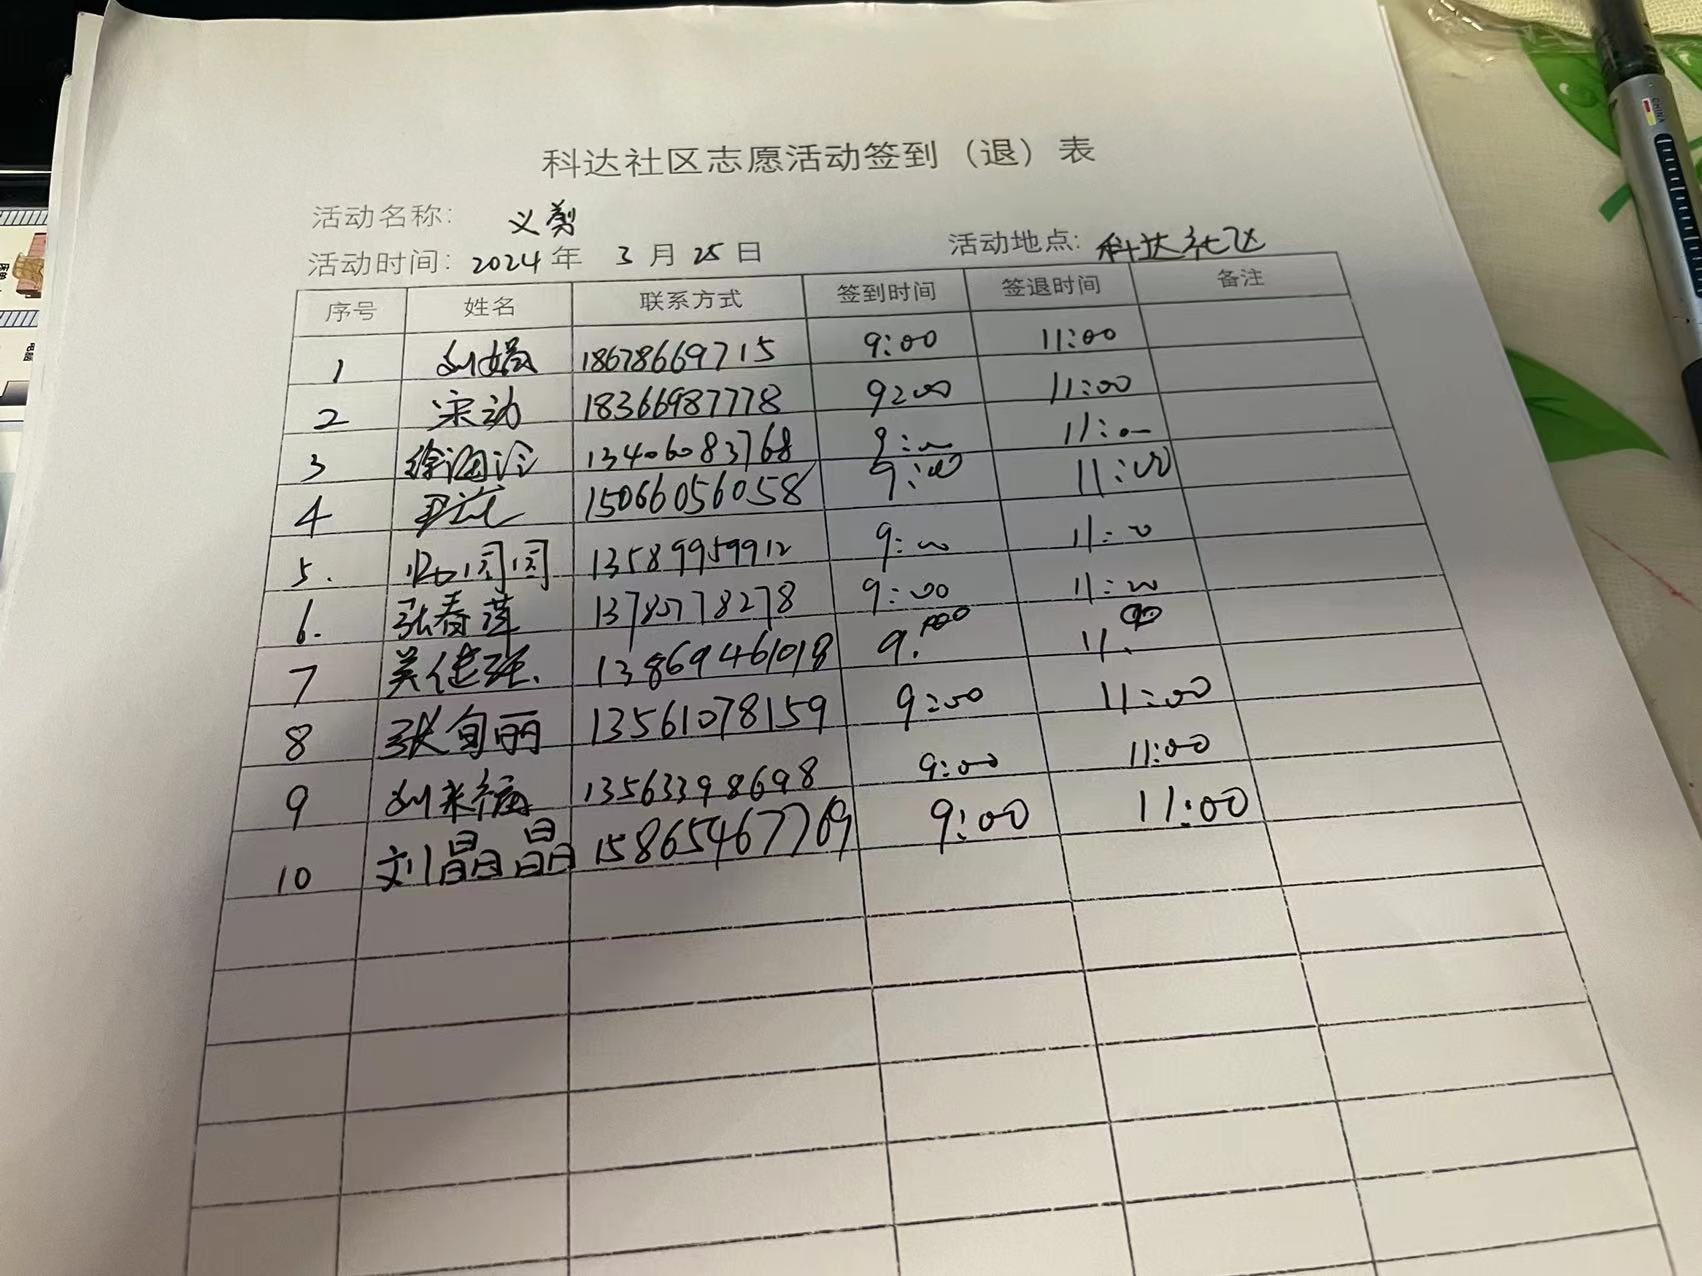 科达社区志愿活动签到（退）表
活动名称： 义剪
活动时间：2024年 3月25日 活动地点：科达社区
序号 姓名 联系方式 签到时间 签退时间 备注
1 刘娟 18678669715 9:00 11:00
2 宋动 18366987778 9:00 11:00
3 徐海 13406083768 9:00 11:00
4 尹 15066056058 9:00 11:00
5. 闫闫 13589959912 9:00 11:00
6. 张春莲 13780778278 9:00 11:00
7 吴健强. 13869461018 9:00 11:00
8 张旬丽 13561078159 9:00 11:00
9 刘来福 13563398698 9:00 11:00
10 刘晶晶 15865467769 9:00 11:00